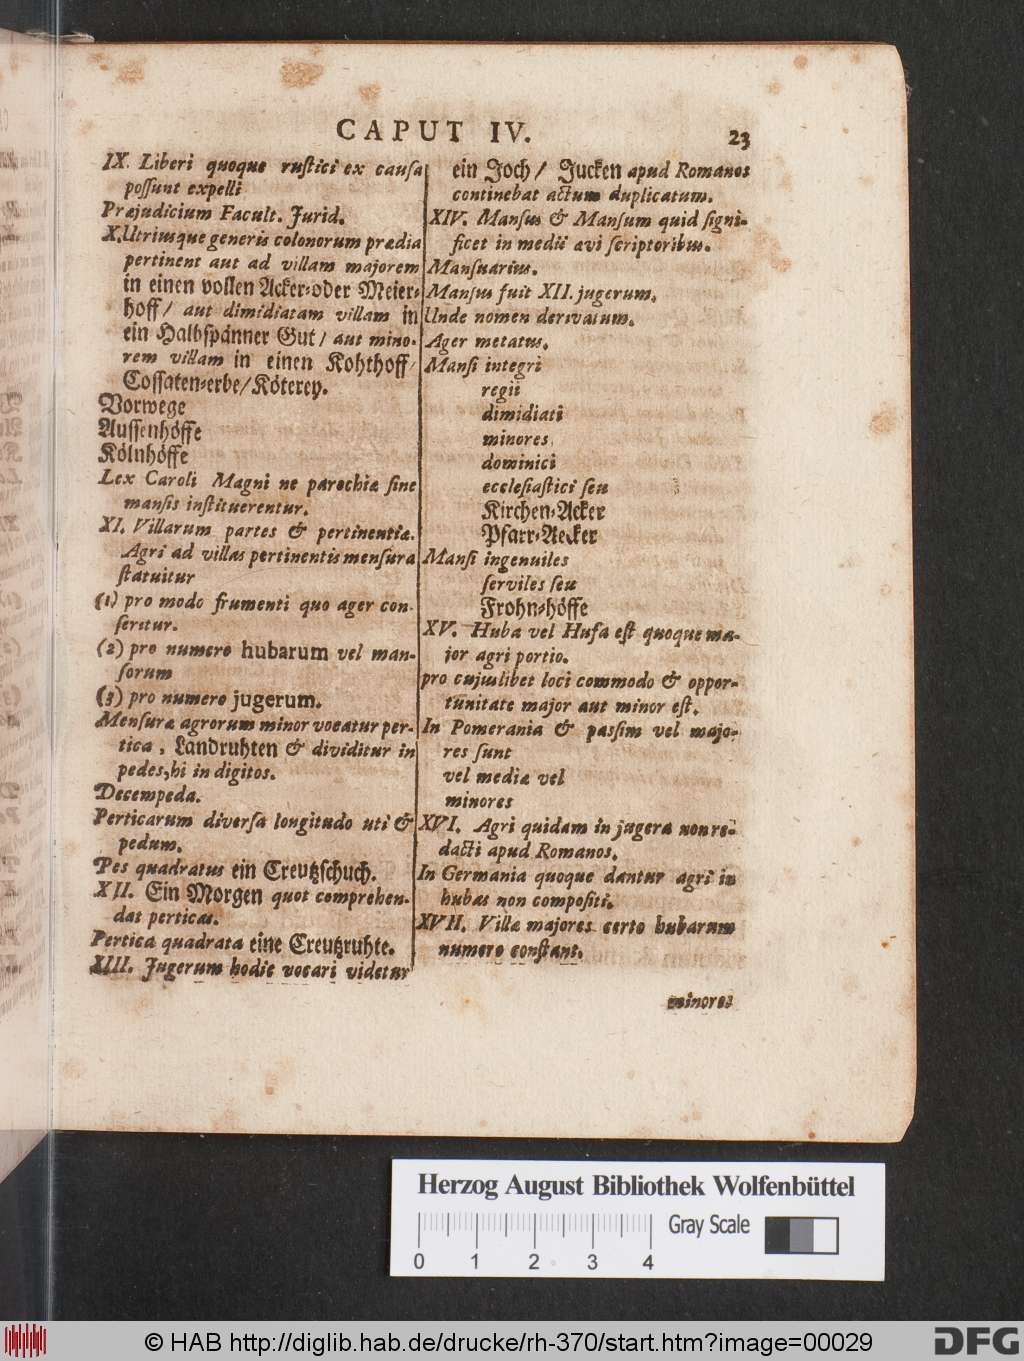 CAPUT IV.
23
IX. Liberi quoque rustici ex causa
possunt expelli
Præjudicium Facult. Jurid.
X. Utriusque generis colonorum prædia
pertinent aut ad villam majorem
in einen vollen Acker-oder Meier-
hoff/ aut dimidiatam villam in
ein Halbspänner Gut/ aut mino-
rem villam in einen Kohthoff/
Cossaten-erbe/Köterey.
Vorwege
Aussenhöffe
Kölnhöffe
Lex Caroli Magni ne parochiæ sine
mansis instituerentur.
XI. Villarum partes & pertinentiæ.
Agri ad villas pertinentis mensura
statuitur
(1) pro modo frumenti quo ager con-
seritur.
(2) pro numero hubarum vel man-
sorum
(3) pro numero jugerum.
Mensura agrorum minor vocatur per-
tica, Landruhten & dividitur in
pedes, hi in digitos.
Decempeda.
Perticarum diversa longitudo uti &
pedum.
Pes quadratus ein Creutzschuch.
XII. Ein Morgen quot comprehen-
dat perticas.
Pertica quadrata eine Creutzruhte.
XIII. Jugerum hodie vocari videtur
ein Joch/ Jucken apud Romanos
continebat actum duplicatum.
XIV. Mansus & Mansum quid signi-
ficet in medii ævi scriptoribus.
Mansuarius.
Mansus fuit XII. jugerum.
Unde nomen derivatum.
Ager metatus.
Mansi integri
regii
dimidiati
minores
dominici
ecclesiastici seu
Kirchen-Acker
Pfarr-Aecker
Mansi ingenuiles
serviles seu
Frohn-höffe
XV. Huba vel Hufa est quoque ma-
jor agri portio.
pro cujuslibet loci commodo & oppor-
tunitate major aut minor est.
In Pomerania & passim vel majo-
res sunt
vel mediæ vel
minores
XVI. Agri quidam in jugera non re-
dacti apud Romanos.
In Germania quoque dantur agri in
hubas non compositi.
XVII. Villæ majores certo hubarum
numero constant.
minores
Herzog August Bibliothek Wolfenbüttel
Gray Scale
0 1 2 3 4
© HAB http://diglib.hab.de/drucke/rh-370/start.htm?image=00029
DFG